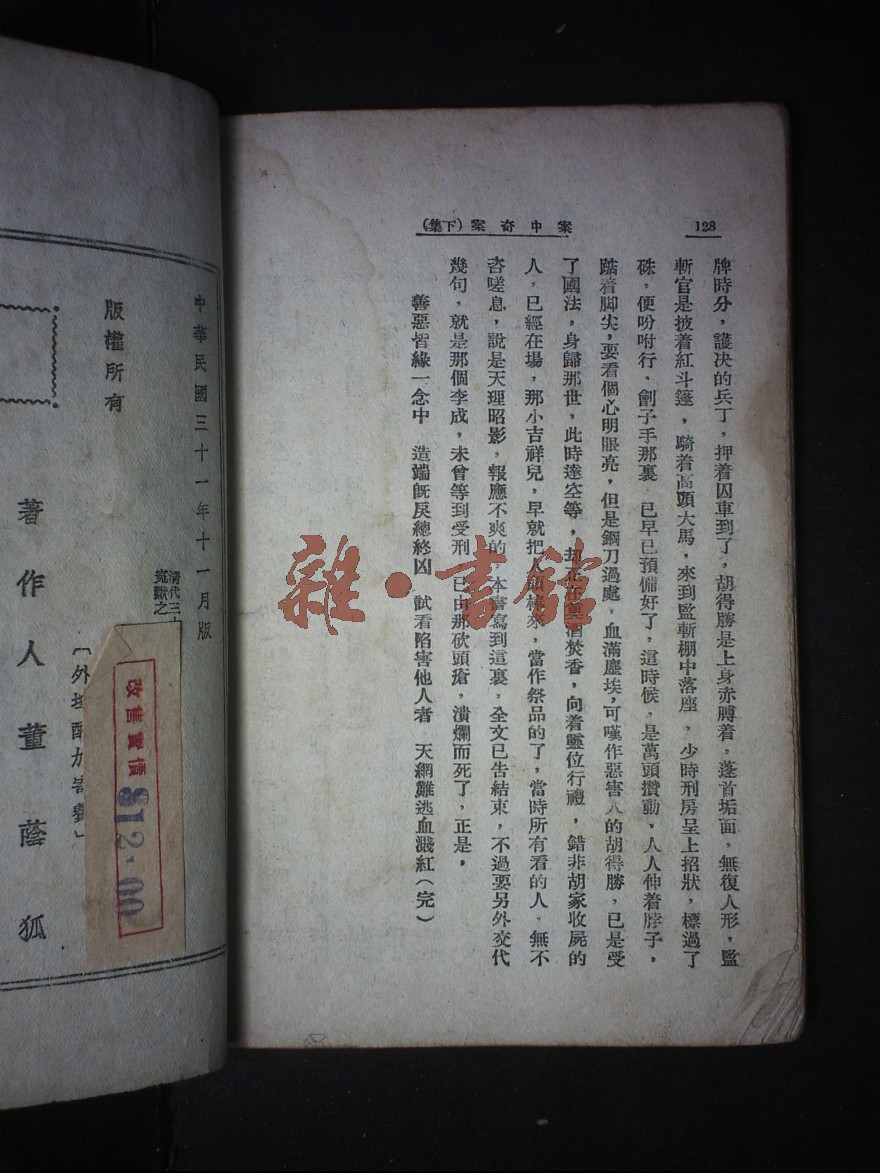 128
案中奇案(下集)
牌時分，護决的兵丁，押着囚車到了，胡得勝是上身赤膊着，蓬首垢面，無復人形，監
斬官是披着紅斗篷，騎着高頭大馬，來到監斬棚中落座，少時刑房呈上招狀，標過了
硃，便吩咐行，劊子手那裏，已早已預備好了，這時候，是萬頭攢動，人人伸着脖子，
踮着脚尖，要看個心明眼亮，但是鋼刀過處，血滿塵埃，可嘆作惡害人的胡得勝，已是受
了國法，身歸那世，此時達空等，却正在奠酒焚香，向着靈位行禮，錯非胡家收屍的
人，已經在場，那小吉祥兒，早就把人頭捧來，當作祭品的了，當時所有看的人，無不
咨嗟息，說是天理昭彰，報應不爽的，本書寫到這裏，全文已告結束，不過要另外交代
幾句，就是那個李成，未曾等到受刑，已由那砍頭瘡，潰爛而死了，正是，
善惡皆緣一念中　造端旣戾總終凶　試看陷害他人者　天網難逃血濺紅（完）
雜·書館
中華民國三十一年十一月版
清代三
冤獄之
版權所有
〔外埠酌加寄費〕
改售實價
$12.00
著作人董蔭狐